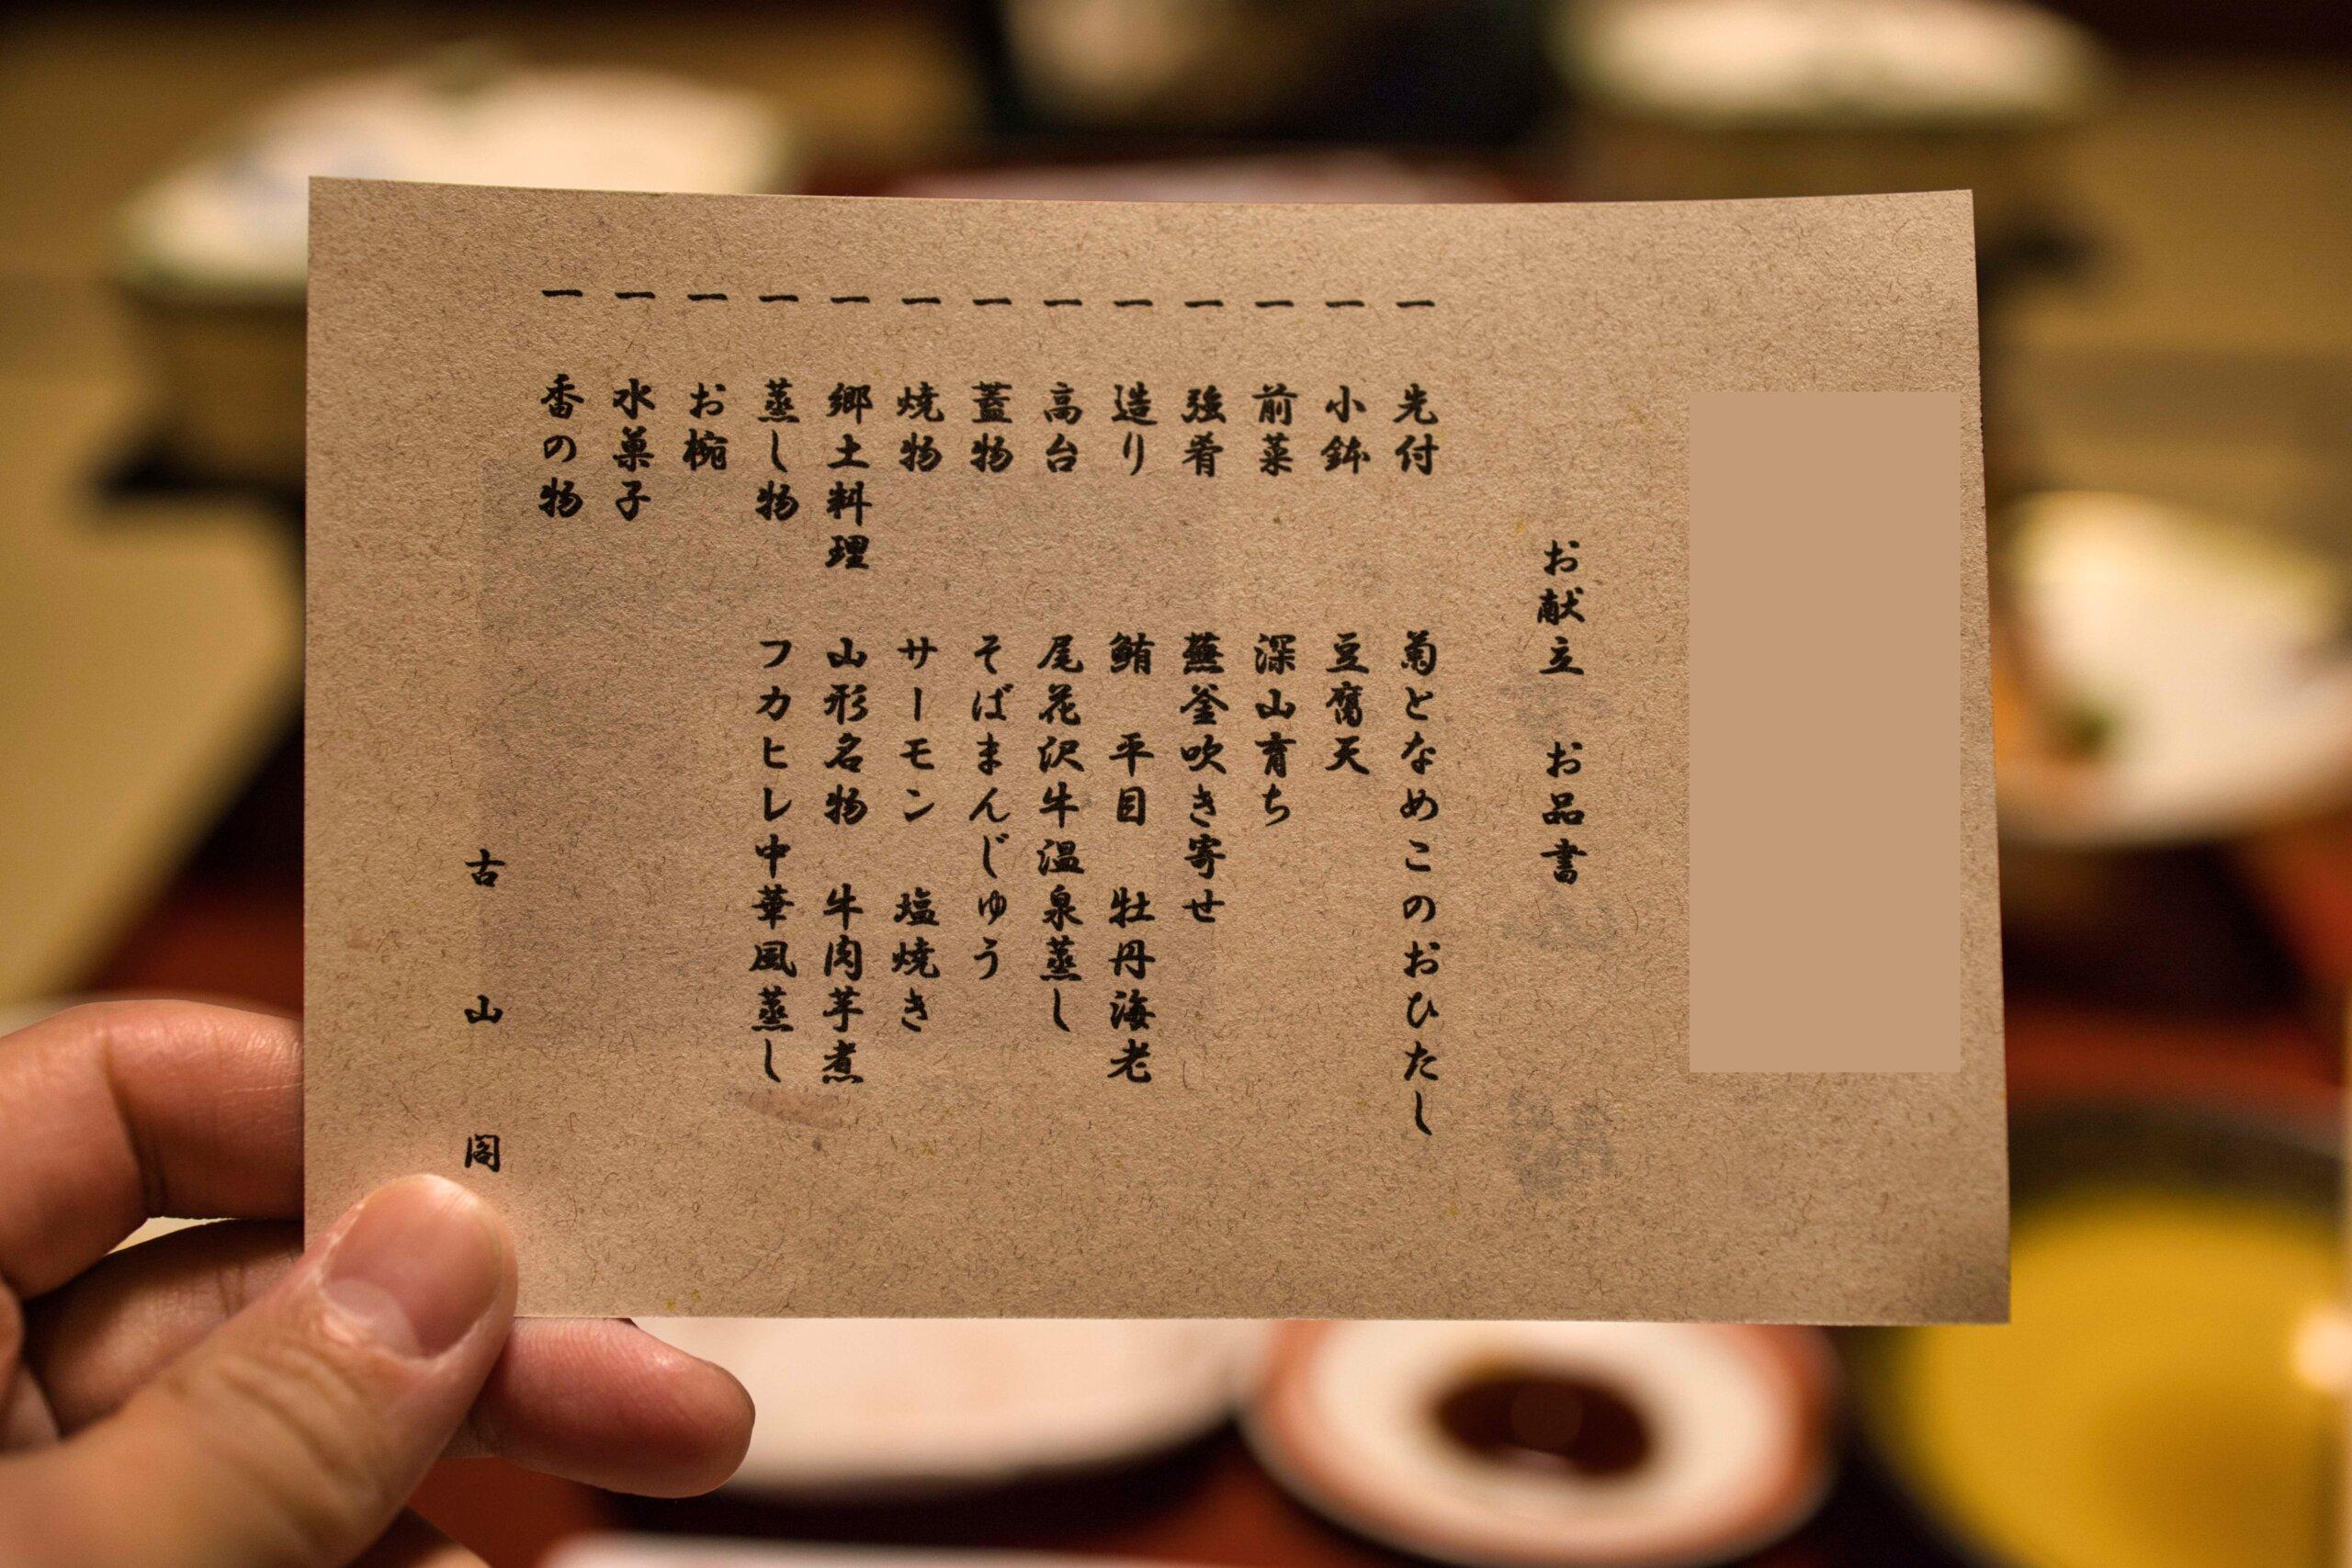 お献立 お品書
一 先付 菊となめこのおひたし
一 小鉢 豆腐天
一 前菜 深山育ち
一 強肴 蕪釜吹き寄せ
一 造り 鮪 平目 牡丹海老
一 高台 尾花沢牛温泉蒸し
一 蓋物 そばまんじゅう
一 焼物 サーモン 塩焼き
一 郷土料理 山形名物 牛肉芋煮
一 蒸し物 フカヒレ中華風蒸し
一 お椀
一 水菓子
一 香の物
古山閣